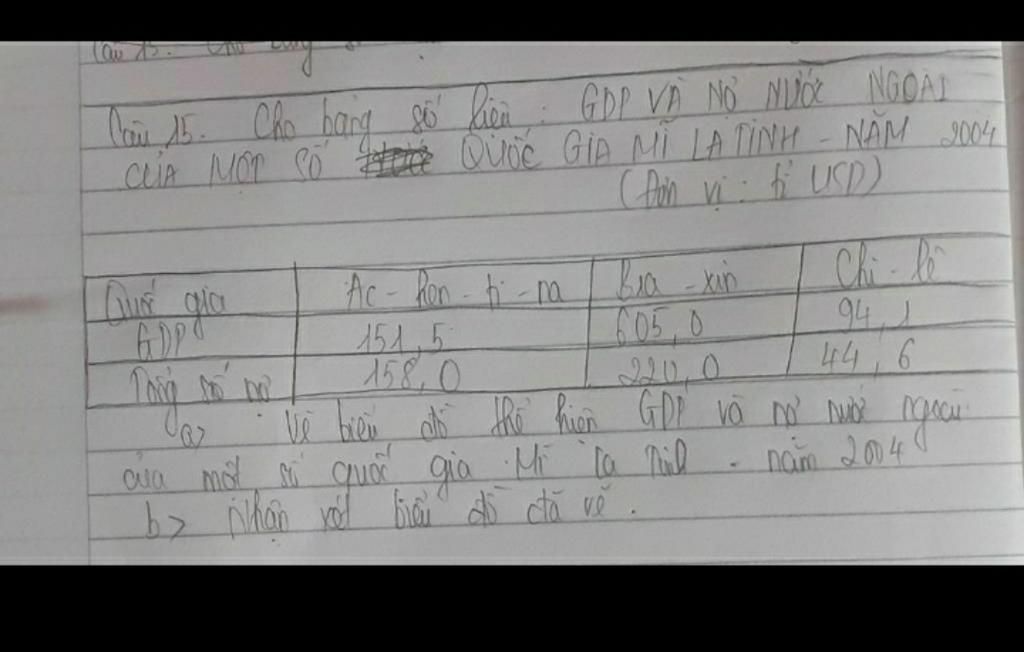 Câu 15. Cho bảng số
Câu 15. Cho bảng số liệu: GDP VÀ NỢ NƯỚC NGOÀI
CỦA MỘT SỐ QUỐC GIA MĨ LA TINH - NĂM 2004
(Đơn vị: tỉ USD)
Quốc gia Ac-hen-ti-na Bra-xin Chi-lê
GDP 151,5 605,0 94,1
Tổng số nợ 158,0 220,0 44,6
a> Vẽ biểu đồ thể hiện GDP và nợ nước ngoài
của một số quốc gia Mĩ la tinh - năm 2004
b> Nhận xét biểu đồ đã vẽ.